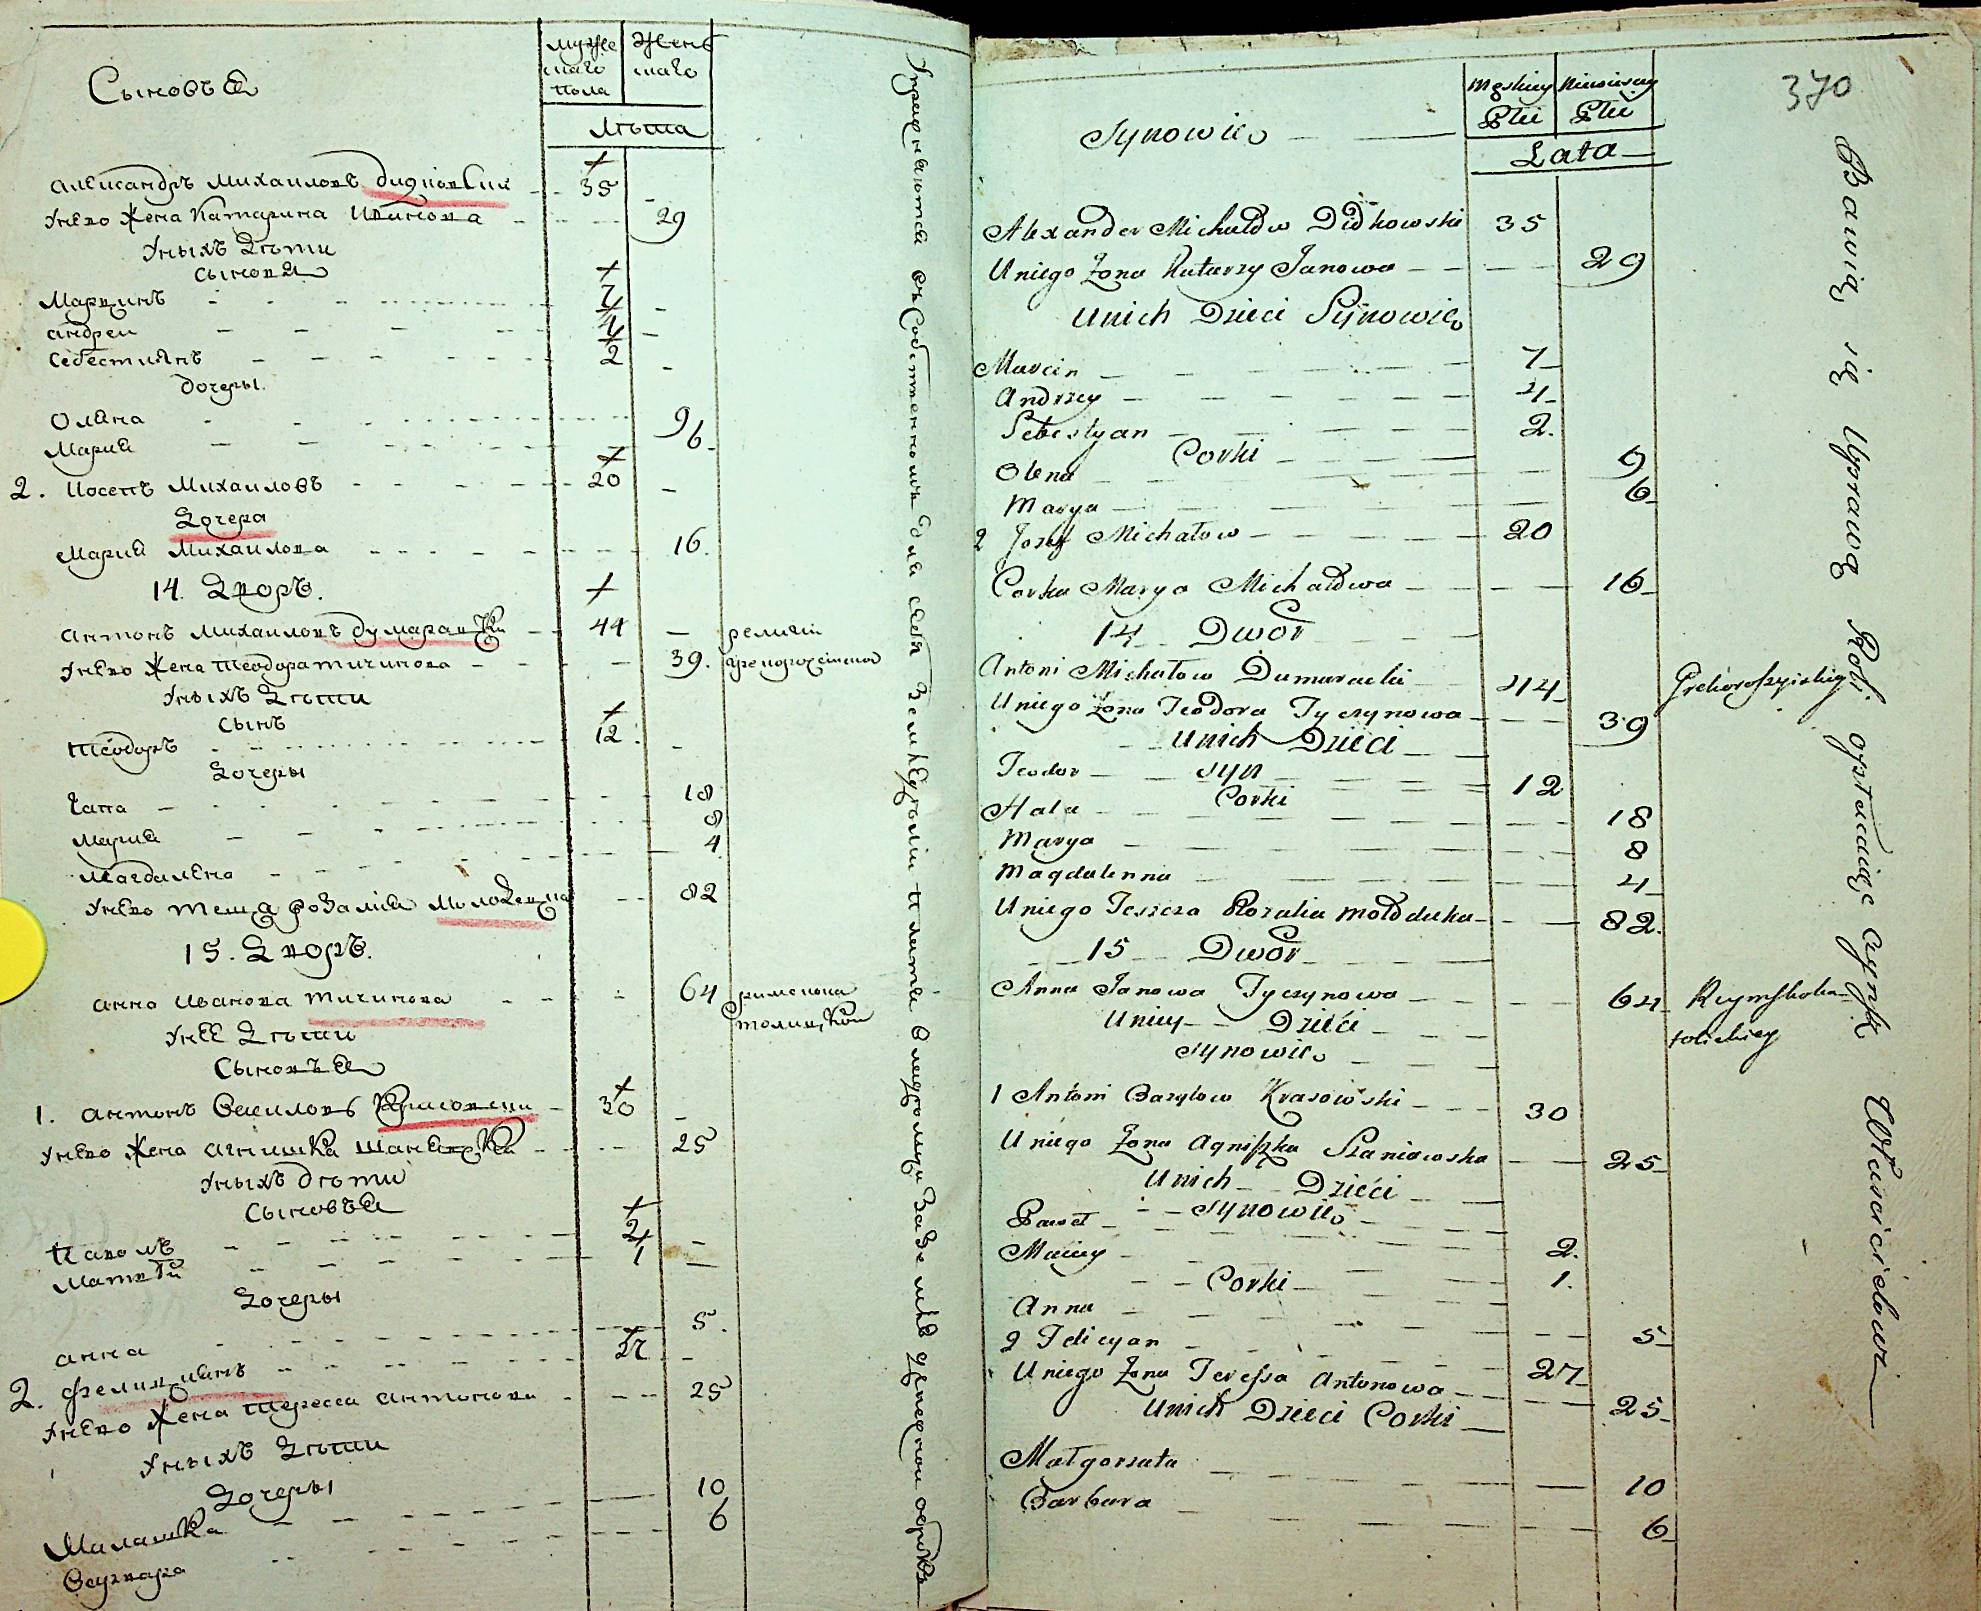 Сыновья
мужеска го пола
женска го
Лѣта
Александръ Михаиловъ Дидковски 35
У него жена Катарина Иванова 29
У нихъ Дѣти
Сыновя
Марцинъ 7
Андреи 4
Себестиянъ 2
дочеры
Олена 9
Мария 6
2. Иосепъ Михаиловъ 20
Дочера
Мария Михаилова 16.
14. Дворъ.
Антонъ Михаиловъ Думарацки 44 религiи
У него жена Теодора Тичинова 39. грекоросейской
У нихъ Дѣти
Сынъ
Теодоръ 12
Дочеры
Гапа 18
Мария 8
Магдалена 4
У него теща Розалия Молодецка 82
15. Дворъ.
Анна Иванова Тичинова 64 римскока
У нее Дѣти толицкой
Сыновья
1. Антонъ Василовъ Красовски 30
У него жена Агнишка Шанявска 25
У нихъ Дѣти
Сыновья
Павелъ 2
Матвѣй 1
Дочеры
Анна 5.
2. Фелицианъ 27
У него жена Тересса Антонова 25
У нихъ Дѣти
Дочеры
Малашка 10
Варвара 6
370
Synowie
Męskiey Płci
Niewiesciey Płci
Lata
Alexander Michałow Didkowski 35
U niego Żona Katarzy Janowa 29
U nich Dzieci Synowie
Marcin 7
Andrzey 4
Sebestyan 2.
Corki
Olena 9
Marya 6
2 Jozef Michałow 20
Corka Marya Michałowa 16
14 Dwor
Antoni Michałow Dumaracki 44 Grekorossyiskiey
U niego Żona Teodora Tyczynowa 39
U nich Dzieci
Teodor syn 12
Corki
Hala 18
Marya 8
Magdalenna 4
U niego Teszcza Rozalia Mołodecka 82.
15 Dwor
Anna Janowa Tyczynowa 64 Rzymskoka
U niey Dzieci tolickiey
synowie
1 Antoni Bazylow Krasowski 30
U niego Żona Agniszka Szaniawska 25
U nich Dzieci
synowie
Paweł 2.
Maciey 1.
Corki
Anna 5
2 Felicyan 27
U niego Żona Teressa Antonowa 25
U nich Dzieci Corki
Małgorzata 10
Barbara 6
Bawią się Uprawą Roli opłacając czynsz Właścicielowi